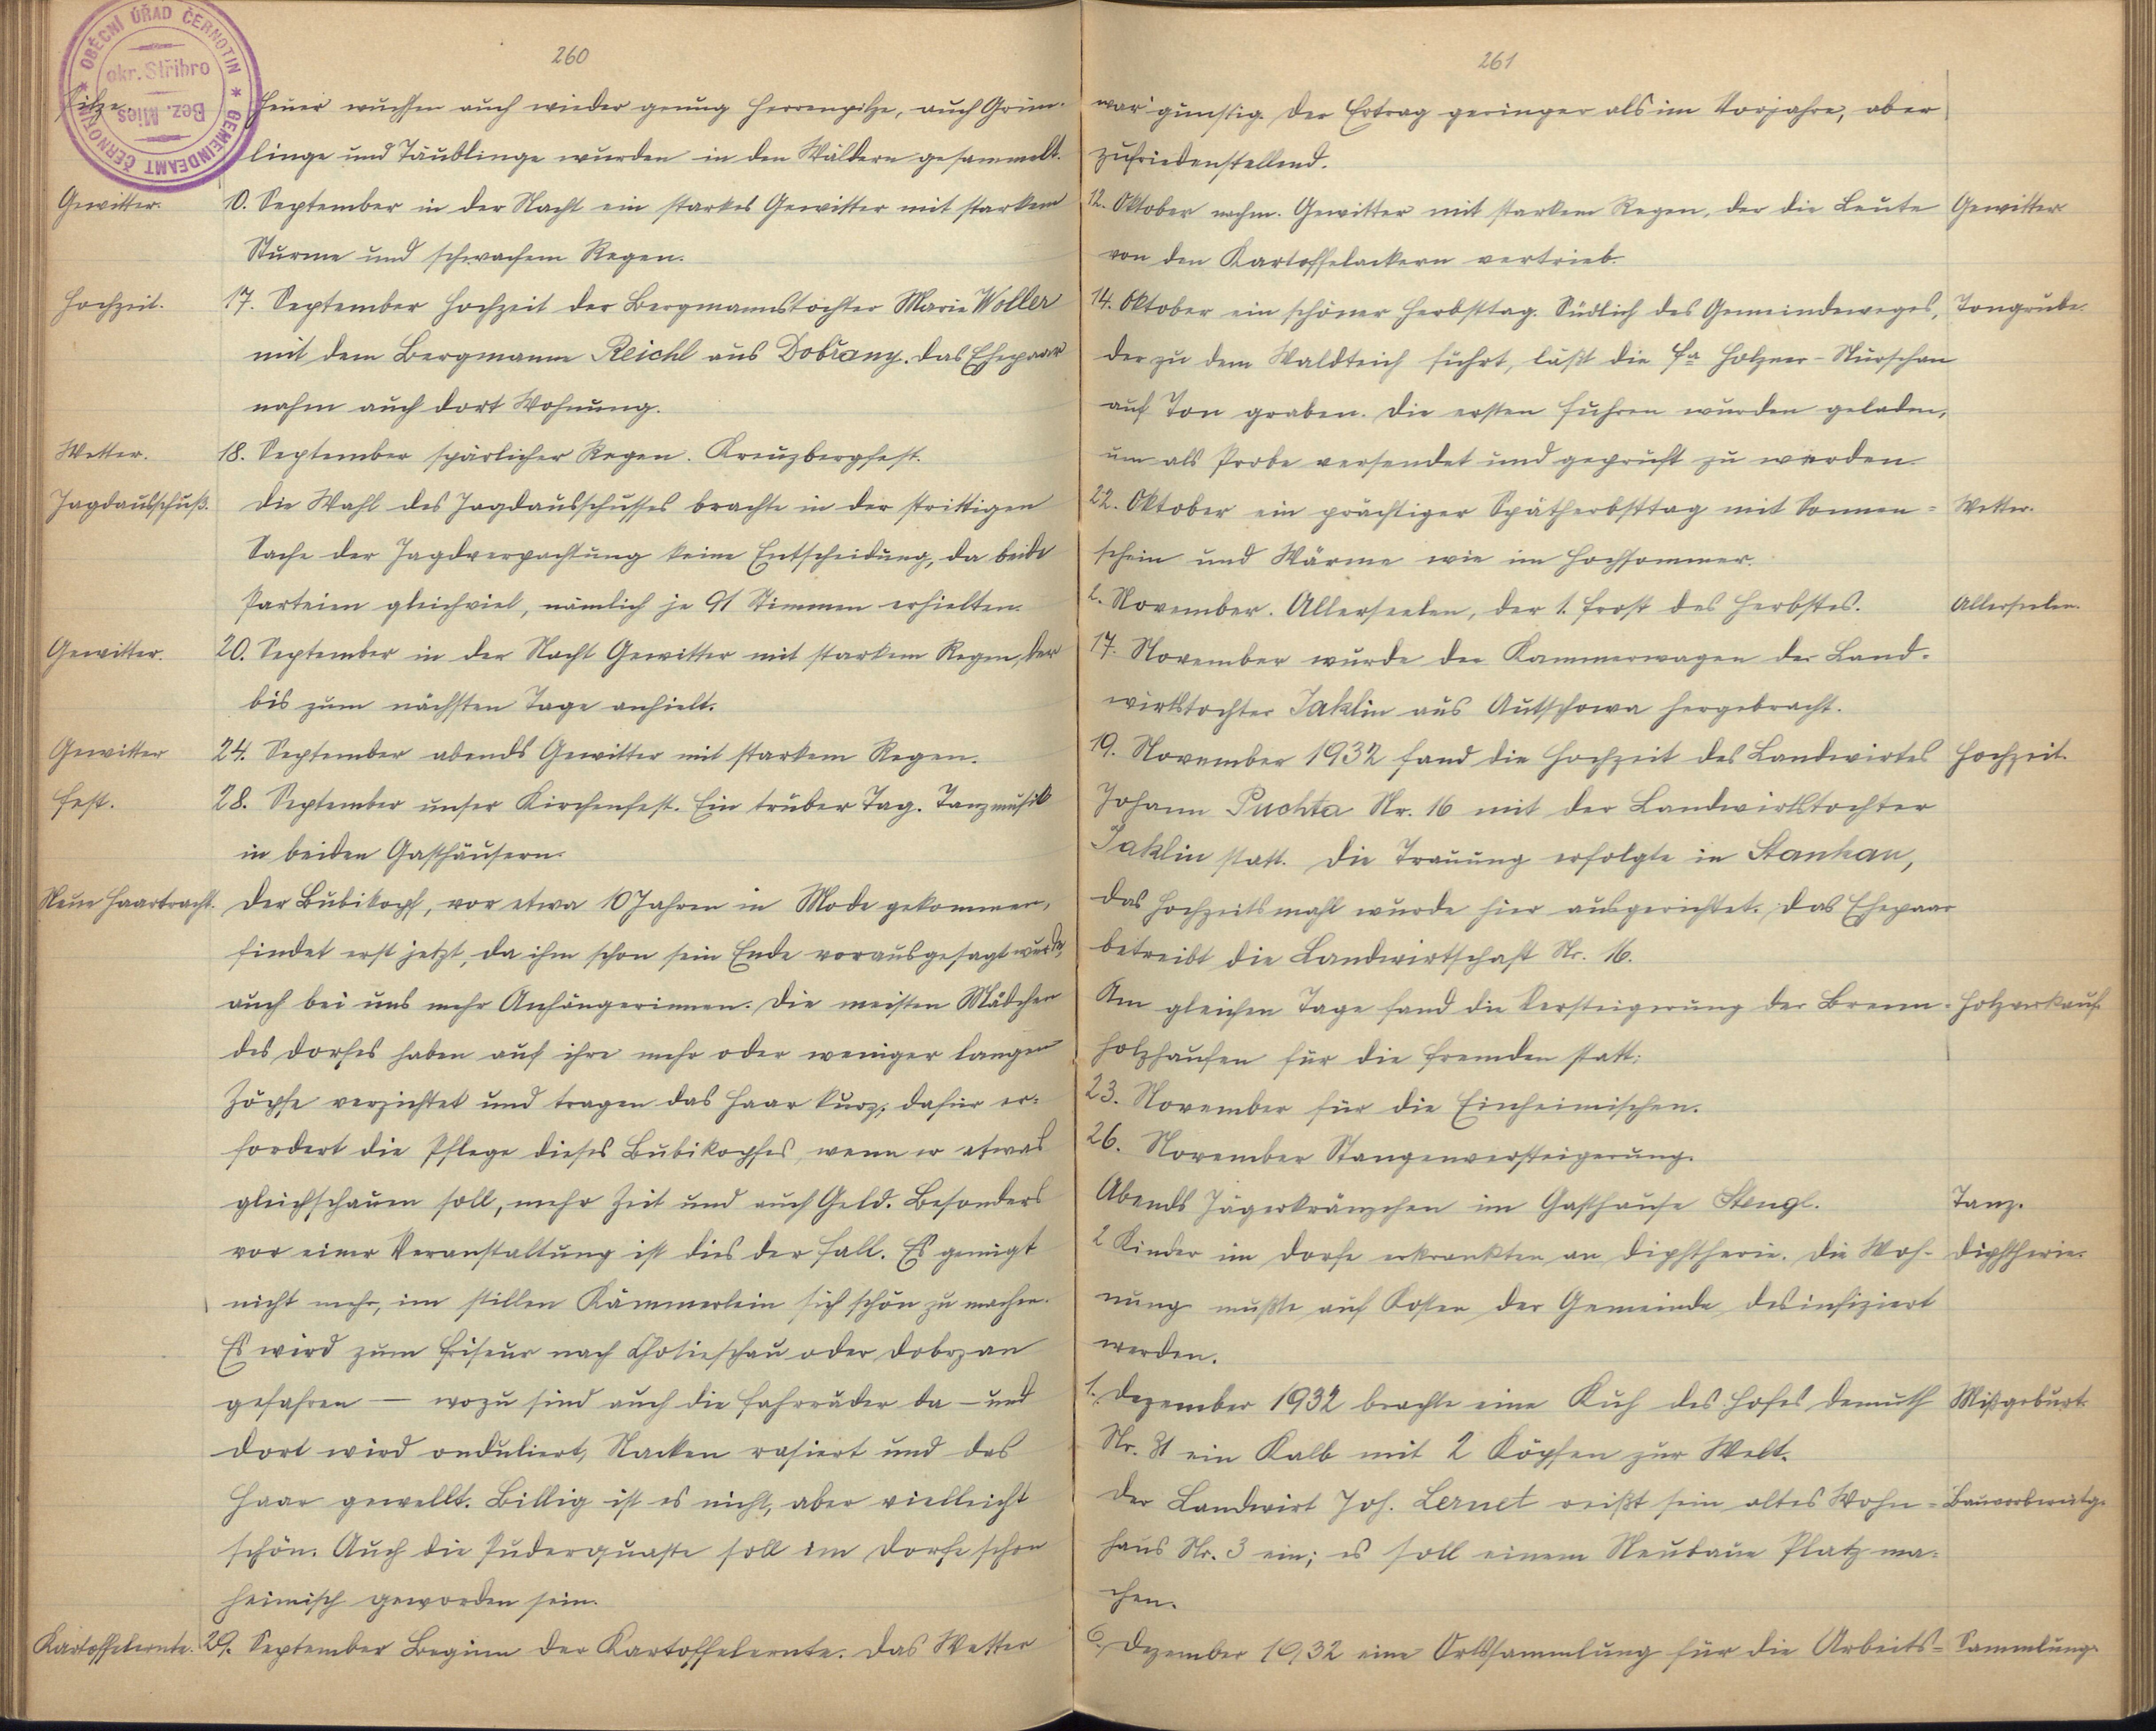 OBĚCNÍ ÚŘAD ČERNOTIN * GEMEINDEAMT ČERNOTIN *
okr. Stříbro
Bez. Mies
260
Pilze. Heuer wuchsen auch wieder genug Herrenpilze, auch Grün-
linge und Täublinge wurden in den Wäldern gesammelt.
Gewitter. 10. September in der Nacht ein starkes Gewitter mit starkem
Sturme und schwachem Regen.
Hochzeit. 17. September Hochzeit der Bergmannstochter Marie Woller
mit dem Bergmanne Reichl aus Dobřany. Das Ehepaar
nahm auch dort Wohnung.
Wetter. 18. September spärlicher Regen. Kreuzbergfest.
Jagdausschuß. Die Wahl des Jagdausschusses brachte in der strittigen
Sache der Jagdverpachtung keine Entscheidung, da beide
Parteien gleichviel, nämlich je 91 Stimmen erhielten.
Gewitter. 20. September in der Nacht Gewitter mit starkem Regen, der
bis zum nächsten Tage anhielt.
Gewitter 24. September abends Gewitter mit starkem Regen.
Fest. 28. September unser Kirchenfest. Ein trüber Tag. Tanzmusik
in beiden Gasthäusern.
Neue Haartracht. Der Bubikopf, vor etwa 10 Jahren in Mode gekommen,
findet erst jetzt, da ihm schon sein Ende vorausgesagt wurde,
auch bei uns mehr Anhängerinnen. Die meisten Mädchen
des Dorfes haben auf ihre mehr oder weniger langen
Zöpfe verzichtet und tragen das Haar kurz; dafür er-
fordert die Pflege dieses Bubikopfes, wenn er etwas
gleichschauen soll, mehr Zeit und auch Geld. Besonders
vor einer Veranstaltung ist dies der Fall. Es genügt
nicht mehr, im stillen Kämmerlein sich schön zu machen.
Es wird zum Friseur nach Chotieschau oder Dobrzan
gefahren — wozu sind auch die Fahrräder da — und
dort wird onduliert, Nacken rasiert und das
Haar gewellt. Billig ist es nicht, aber vielleicht
schön. Auch die Puderquaste soll im Dorfe schon
heimisch geworden sein.
Kartoffelernte. 29. September Beginn der Kartoffelernte. Das Wetter
261
war günstig. Der Ertrag geringer als im Vorjahre, aber
zufriedenstellend.
12. Oktober nachm. Gewitter mit starkem Regen, der die Leute Gewitter
von den Kartoffelackern vertrieb.
14. Oktober ein schöner Herbsttag. Südlich des Gemeindeweges, Tongrube.
der zu dem Waldteich führt, läßt die Fa Holzner-Nürschan
auf Ton graben. Die ersten Fuhren wurden geladen,
um als Probe versendet und geprüft zu werden.
22. Oktober ein prächtiger Spätherbsttag mit Sonnen- Wetter.
schein und Wärme wie im Hochsommer.
2. November. Allerseelen, der 1. Frost des Herbstes. Allerseelen.
17. November wurde der Kammerwagen der Land-
wirtstochter Jaklin aus Autschowa hergebracht.
19. November 1932 fand die Hochzeit des Landwirtes Hochzeit.
Johann Puchta Nr. 16 mit der Landwirtstochter
Jaklin statt. Die Trauung erfolgte in Stankau,
das Hochzeitsmahl wurde hier ausgerichtet. Das Ehepaar
betreibt die Landwirtschaft Nr. 16.
Am gleichen Tage fand die Versteigerung der Brenn- Holzverkauf.
holzhaufen für die Fremden statt;
23. November für die Einheimischen.
26. November Stangenversteigerung.
Abends Jägerkränzchen im Gasthause Stengl. Tanz.
2 Kinder im Dorfe erkrankten an Diphtherie. Die Woh- Diphtherie.
nung mußte auf Kosten der Gemeinde desinfiziert
werden.
1. Dezember 1932 brachte eine Kuh des Hofes Demuth Mißgeburt.
Nr. 31 ein Kalb mit 2 Köpfen zur Welt.
Der Landwirt Joh. Lernet reißt sein altes Wohn- Bauvorbereitg.
haus Nr. 3 ein; es soll einem Neubaue Platz ma-
chen.
6. Dezember 1932 eine Ortssammlung für die Arbeits- Sammlung.